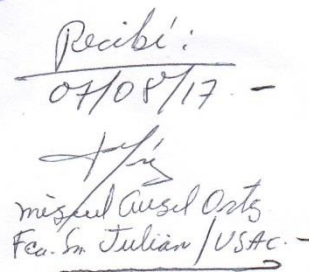 Recibí:
07/08/17.-
Miguel Angel Ortiz
Fca. Sn Julián/USAC.-